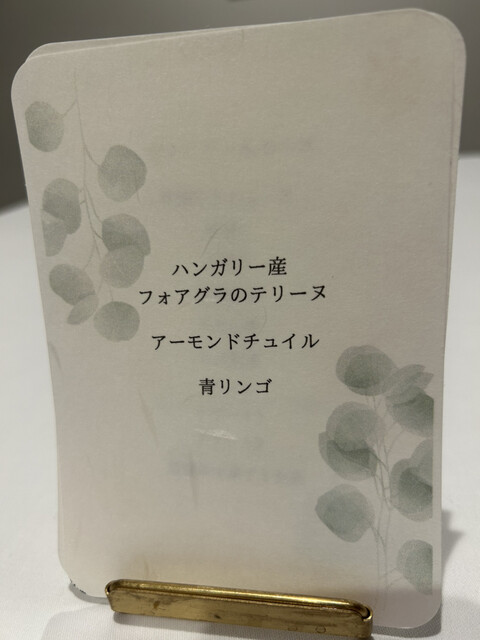 ハンガリー産
フォアグラのテリーヌ
アーモンドチュイル
青リンゴ